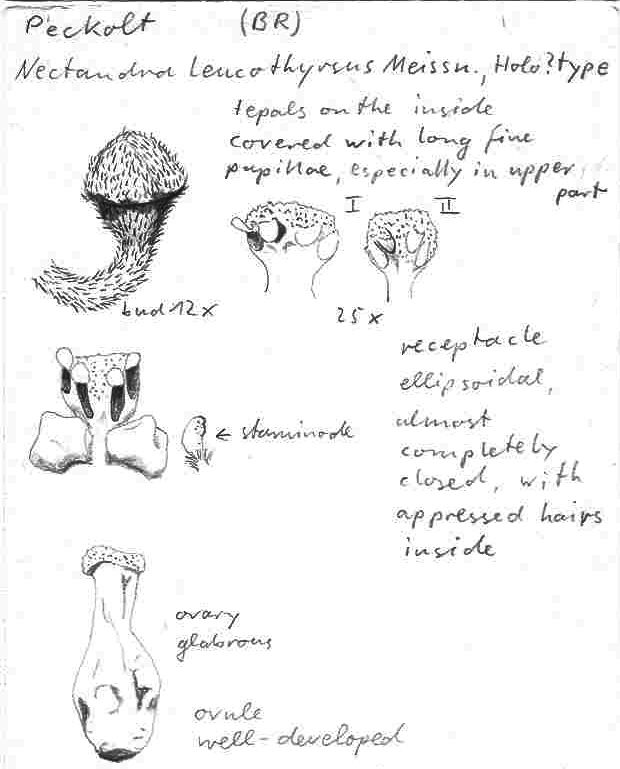 Peckolt (BR)
Nectandra Leucothyrsus Meissn., Holo?type
tepals on the inside
covered with long fine
papillae, especially in upper
part
I II
bud 12x
25x
receptacle
ellipsoidal,
almost
completely
closed, with
appressed hairs
inside
← staminode
ovary
glabrous
ovule
well-developed